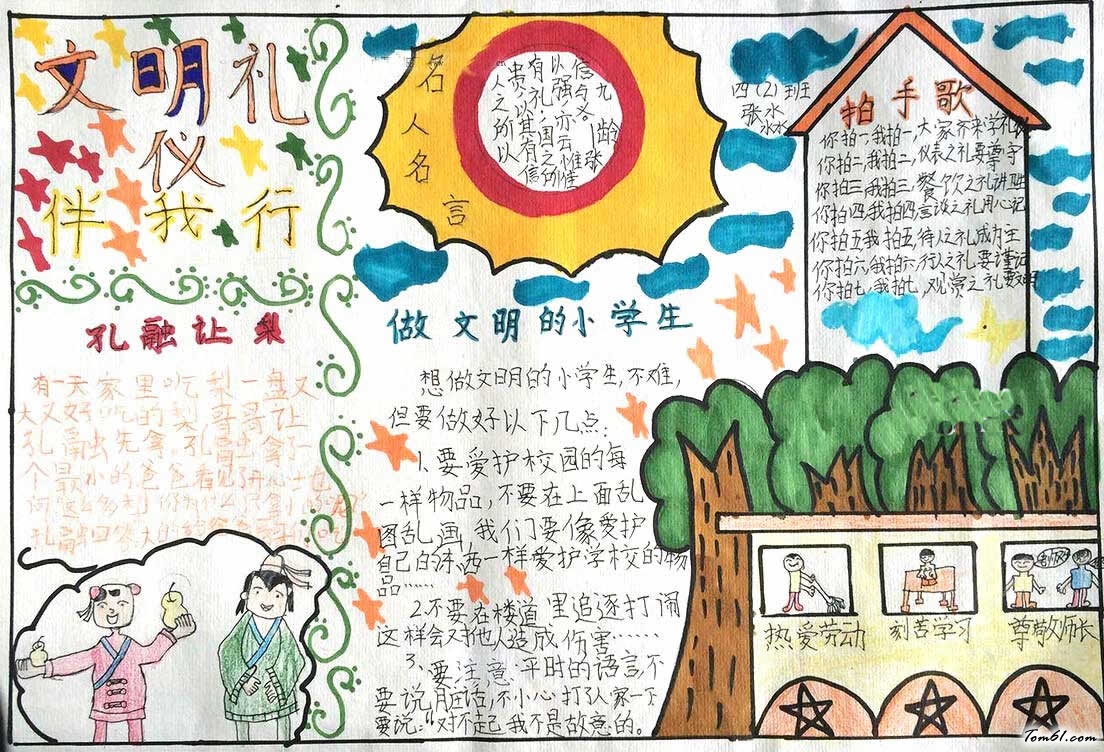 文明礼
仪
伴我行
名人名言
人之所以
贵,以其有信
有礼;国之所
以强,亦云惟
信与义
九龄
张
四(2)班
张水
水水
拍手歌
你拍一,我拍一,大家齐来学礼
你拍二,我拍二,仪表之礼要尊守
你拍三,我拍三,餐饮之礼讲卫生
你拍四,我拍四,言谈之礼用心记
你拍五我拍五,待人之礼成自主
你拍六,我拍六,行人之礼要谨记
你拍七,我拍七,观赏之礼要文明
孔融让梨
有一天家里吃梨一盘又
大又好吃的梨哥哥让
孔融先拿,孔融拿了一
个最小的爸爸看见开心
孔融回答大的
做文明的小学生
想做文明的小学生,不难,
但要做好以下几点:
1、要爱护校园的每
一样物品,不要在上面乱
图乱画,我们要像爱护
自己的东西一样爱护学校的物
品……
2、不要在楼道里追逐打闹
这样会对他人造成伤害……
3、要注意平时的语言,不
要说脏话,不小心打了人家一下
要说:“对不起我不是故意的。
热爱劳动
刻苦学习
尊敬师长
老师好
Tom61.com